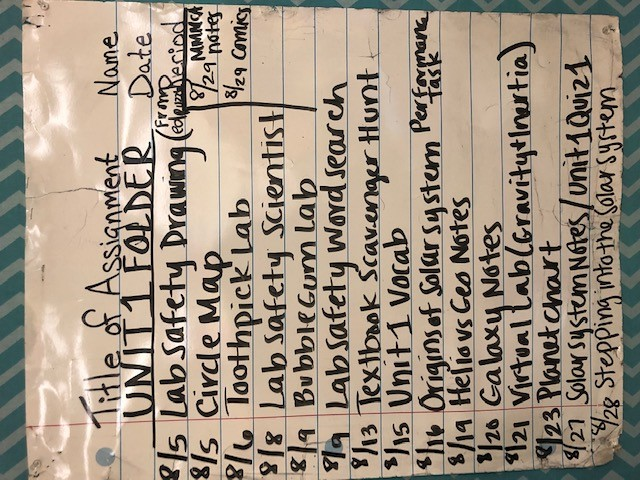 Title of Assignment Name
UNIT 1 FOLDER Date
Period
8/5 Lab Safety Drawing (From
8/5 Circle Map
8/6 Toothpick Lab
8/8 Lab Safety Scientist
8/9 Bubble Gum Lab
8/9 Lab Safety Wordsearch
8/13 Textbook Scavenger Hunt
8/15 Unit 1 Vocab
8/16 Origins of Solar System Performance Task
8/19 Helio vs Geo Notes
8/20 Galaxy Notes
8/21 Virtual Lab (Gravity + Inertia)
8/23 Planet Chart
8/27 Solar System Notes / Unit 1 Quiz 1
8/28 Stepping into the Solar System
8/29 notes
8/29 Comics